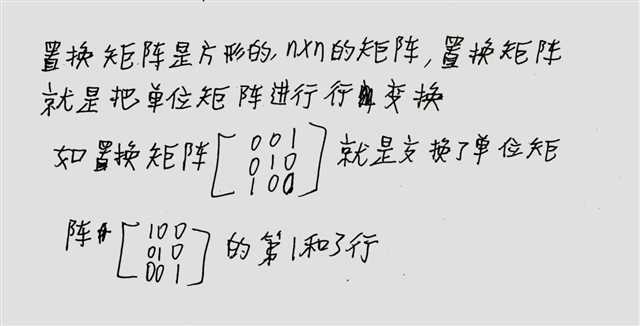 置换矩阵是方形的,n×n的矩阵,置换矩阵
就是把单位矩阵进行行变换
如置换矩阵[0 0 1; 0 1 0; 1 0 0]就是交换了单位矩
阵[1 0 0; 0 1 0; 0 0 1]的第1和3行